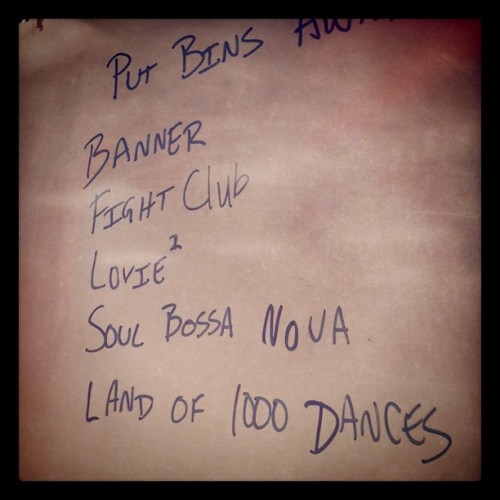 PUT BINS AWAY
BANNER
FIGHT Club
LOVIE²
SOUL BOSSA NOVA
LAND OF 1000 DANCES